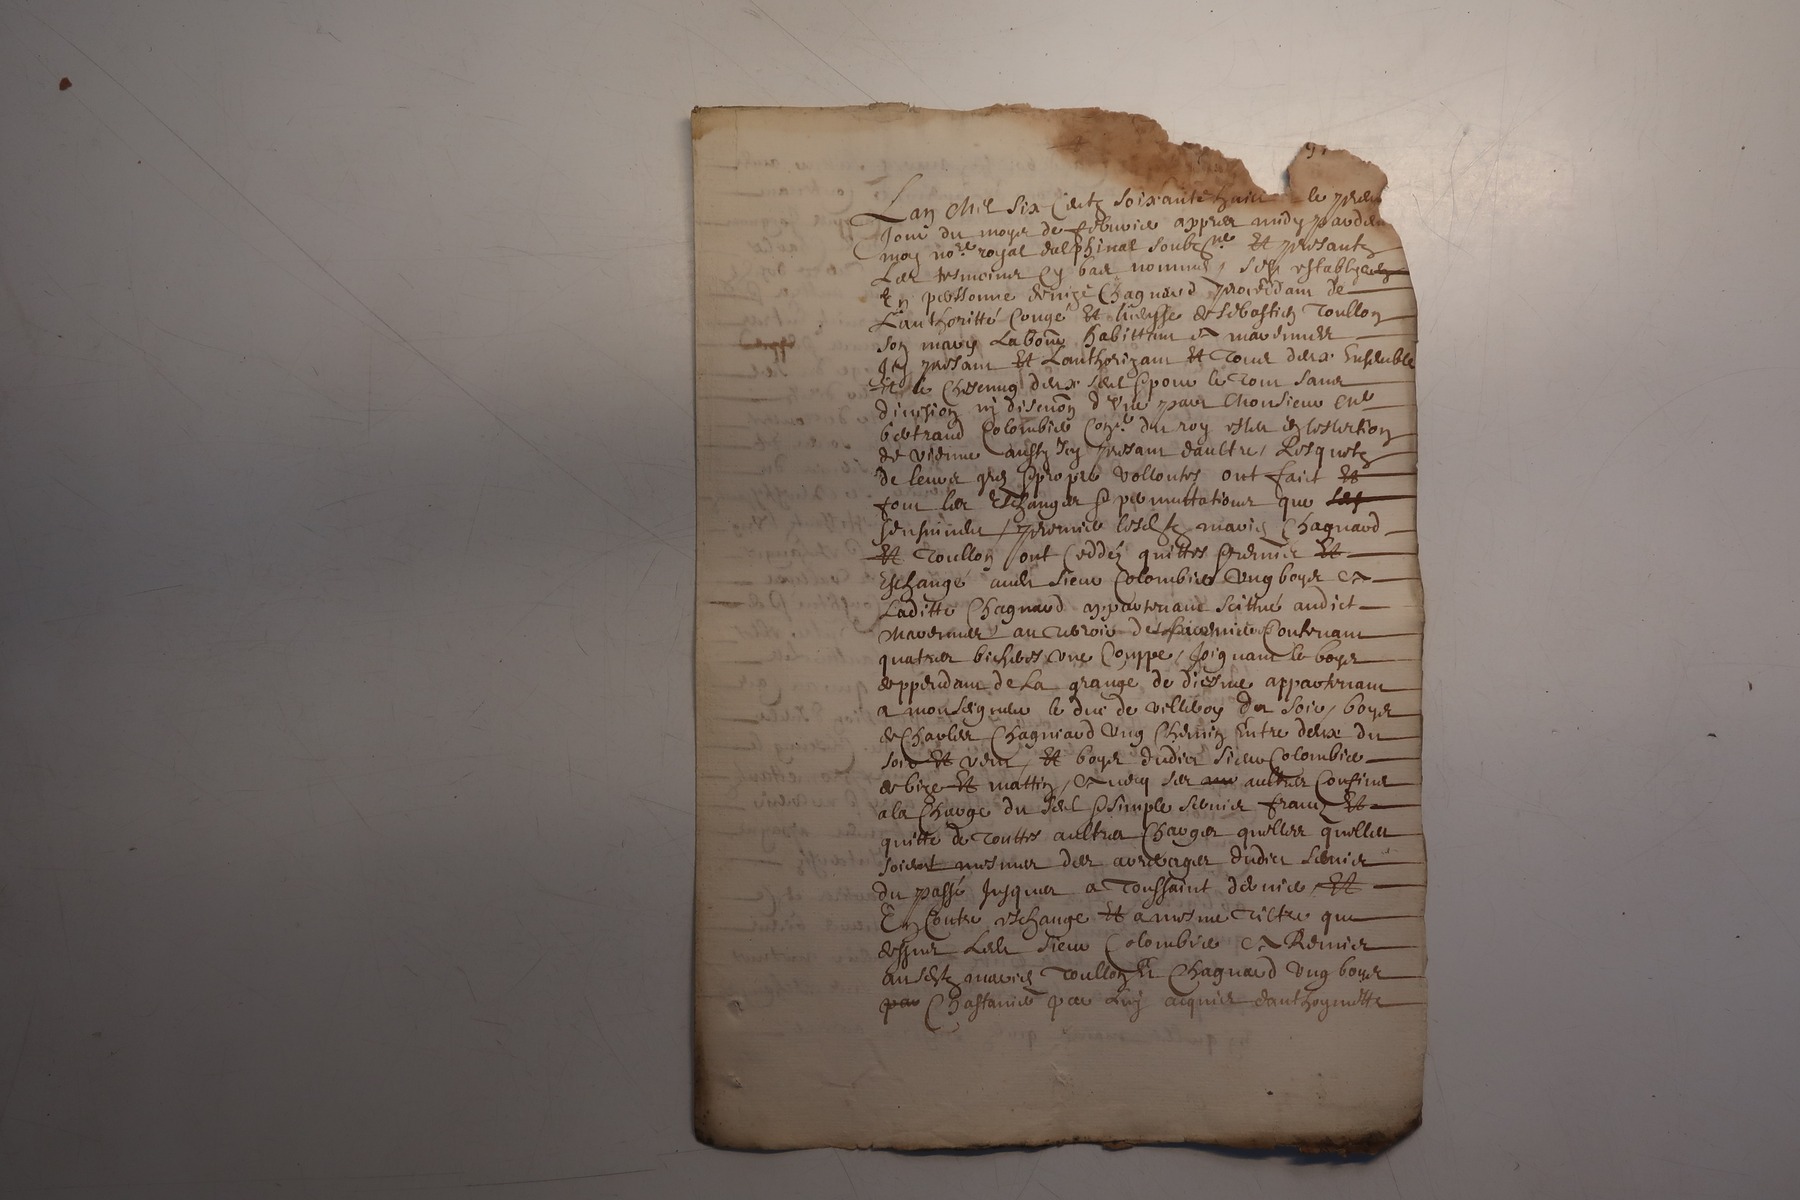 97
Lan Mil six Centz soixante huict le premi
Jour du moys de febvrier appres midy pard
moy no.re royal delphinal soubz.né Et presantz
Les tesmoins Cy bas nommés, sest establye
En personne Denize Chagnard procedant de
Lauthoritté Congé Et licensse de Sebastien Toullon
son mary Labour habittant a marennes
Icy presant Et Lauthorizant Et Tous deux Ensemble
Et le Chescung deux seul & pour le Tout sans
division ny discution d'Une part Monsieur
bertrand Colombier Con.er du roy esleu en leslection
de vienne aussy Icy presant daultre, Lesquels
de leurs grez & propre vollontés ont faict Et
font les Eschanges & permuttations que
sensuivent, premier lesd mariez Chagnard
Et Toullon ont Ceddé quitté & remis Et
Eschangé audit sieur Colombier Ung boys a
Laditte Chagnard appartenant scittué audict
Marennes au Terroir de Contenant
quatres bicheres une Couppe, Joignant le boys
deppendant de La grange de diesme appartenant
a monseigneur le duc de villeroy de soir, boys
de Charles Chagniard Ung Chemin Entre deux du
soir Et vent, Et boys dudict sieur Colombier
de bize Et mattin, avecq ses aultres Confins
a la Charge du seul & simple servis franc Et
quitte de Touttes aultres Charges quelles quelles
soient mesmes des arreyrages dudict servis
du passé Jusques a Toussaint dernier, Et
En Contre eschange Et a mesme Tiltre que
dessus Ledit sieur Colombier a Remis
ausd mariez Toullon Et Chagnard Ung boys
Chastanier par Luy acquis danthoynette